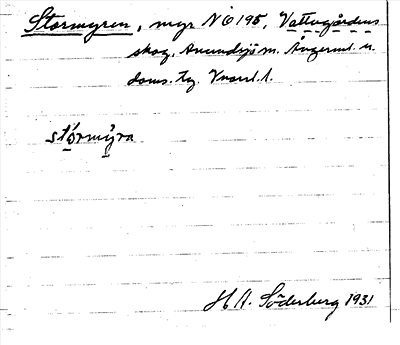 Stormyren, myr NÖ 195, Vattugårdens
skog, Anundsjö sn. Ångerml. n.
doms. tg. Vnorrl. l.
stórmỳra
H A. Söderberg 1931